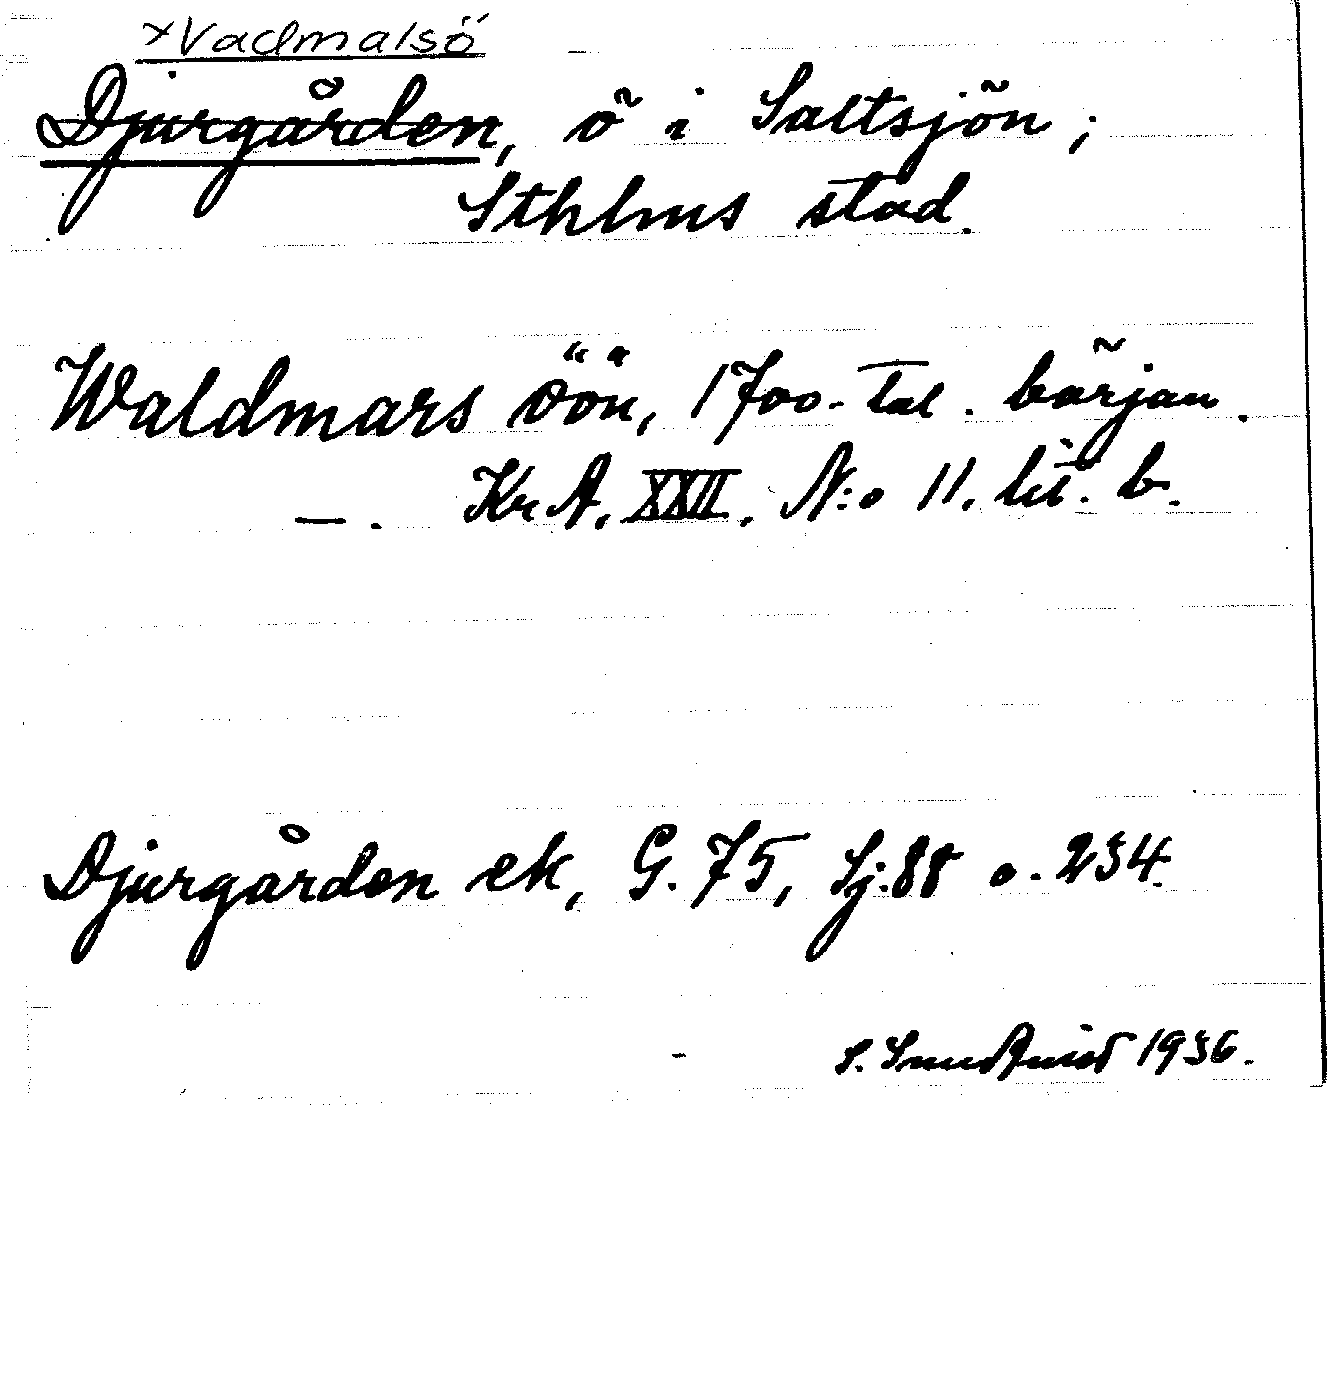 ×Vadmalsö
Djurgården, ö i Saltsjön;
Sthlms stad.
Waldmars öön, 1700-tal. början.
—. KrA. XXII. N:o 11. lit. b.
Djurgården ek, G. 75, Sj. 88 o. 234.
S. 1936.